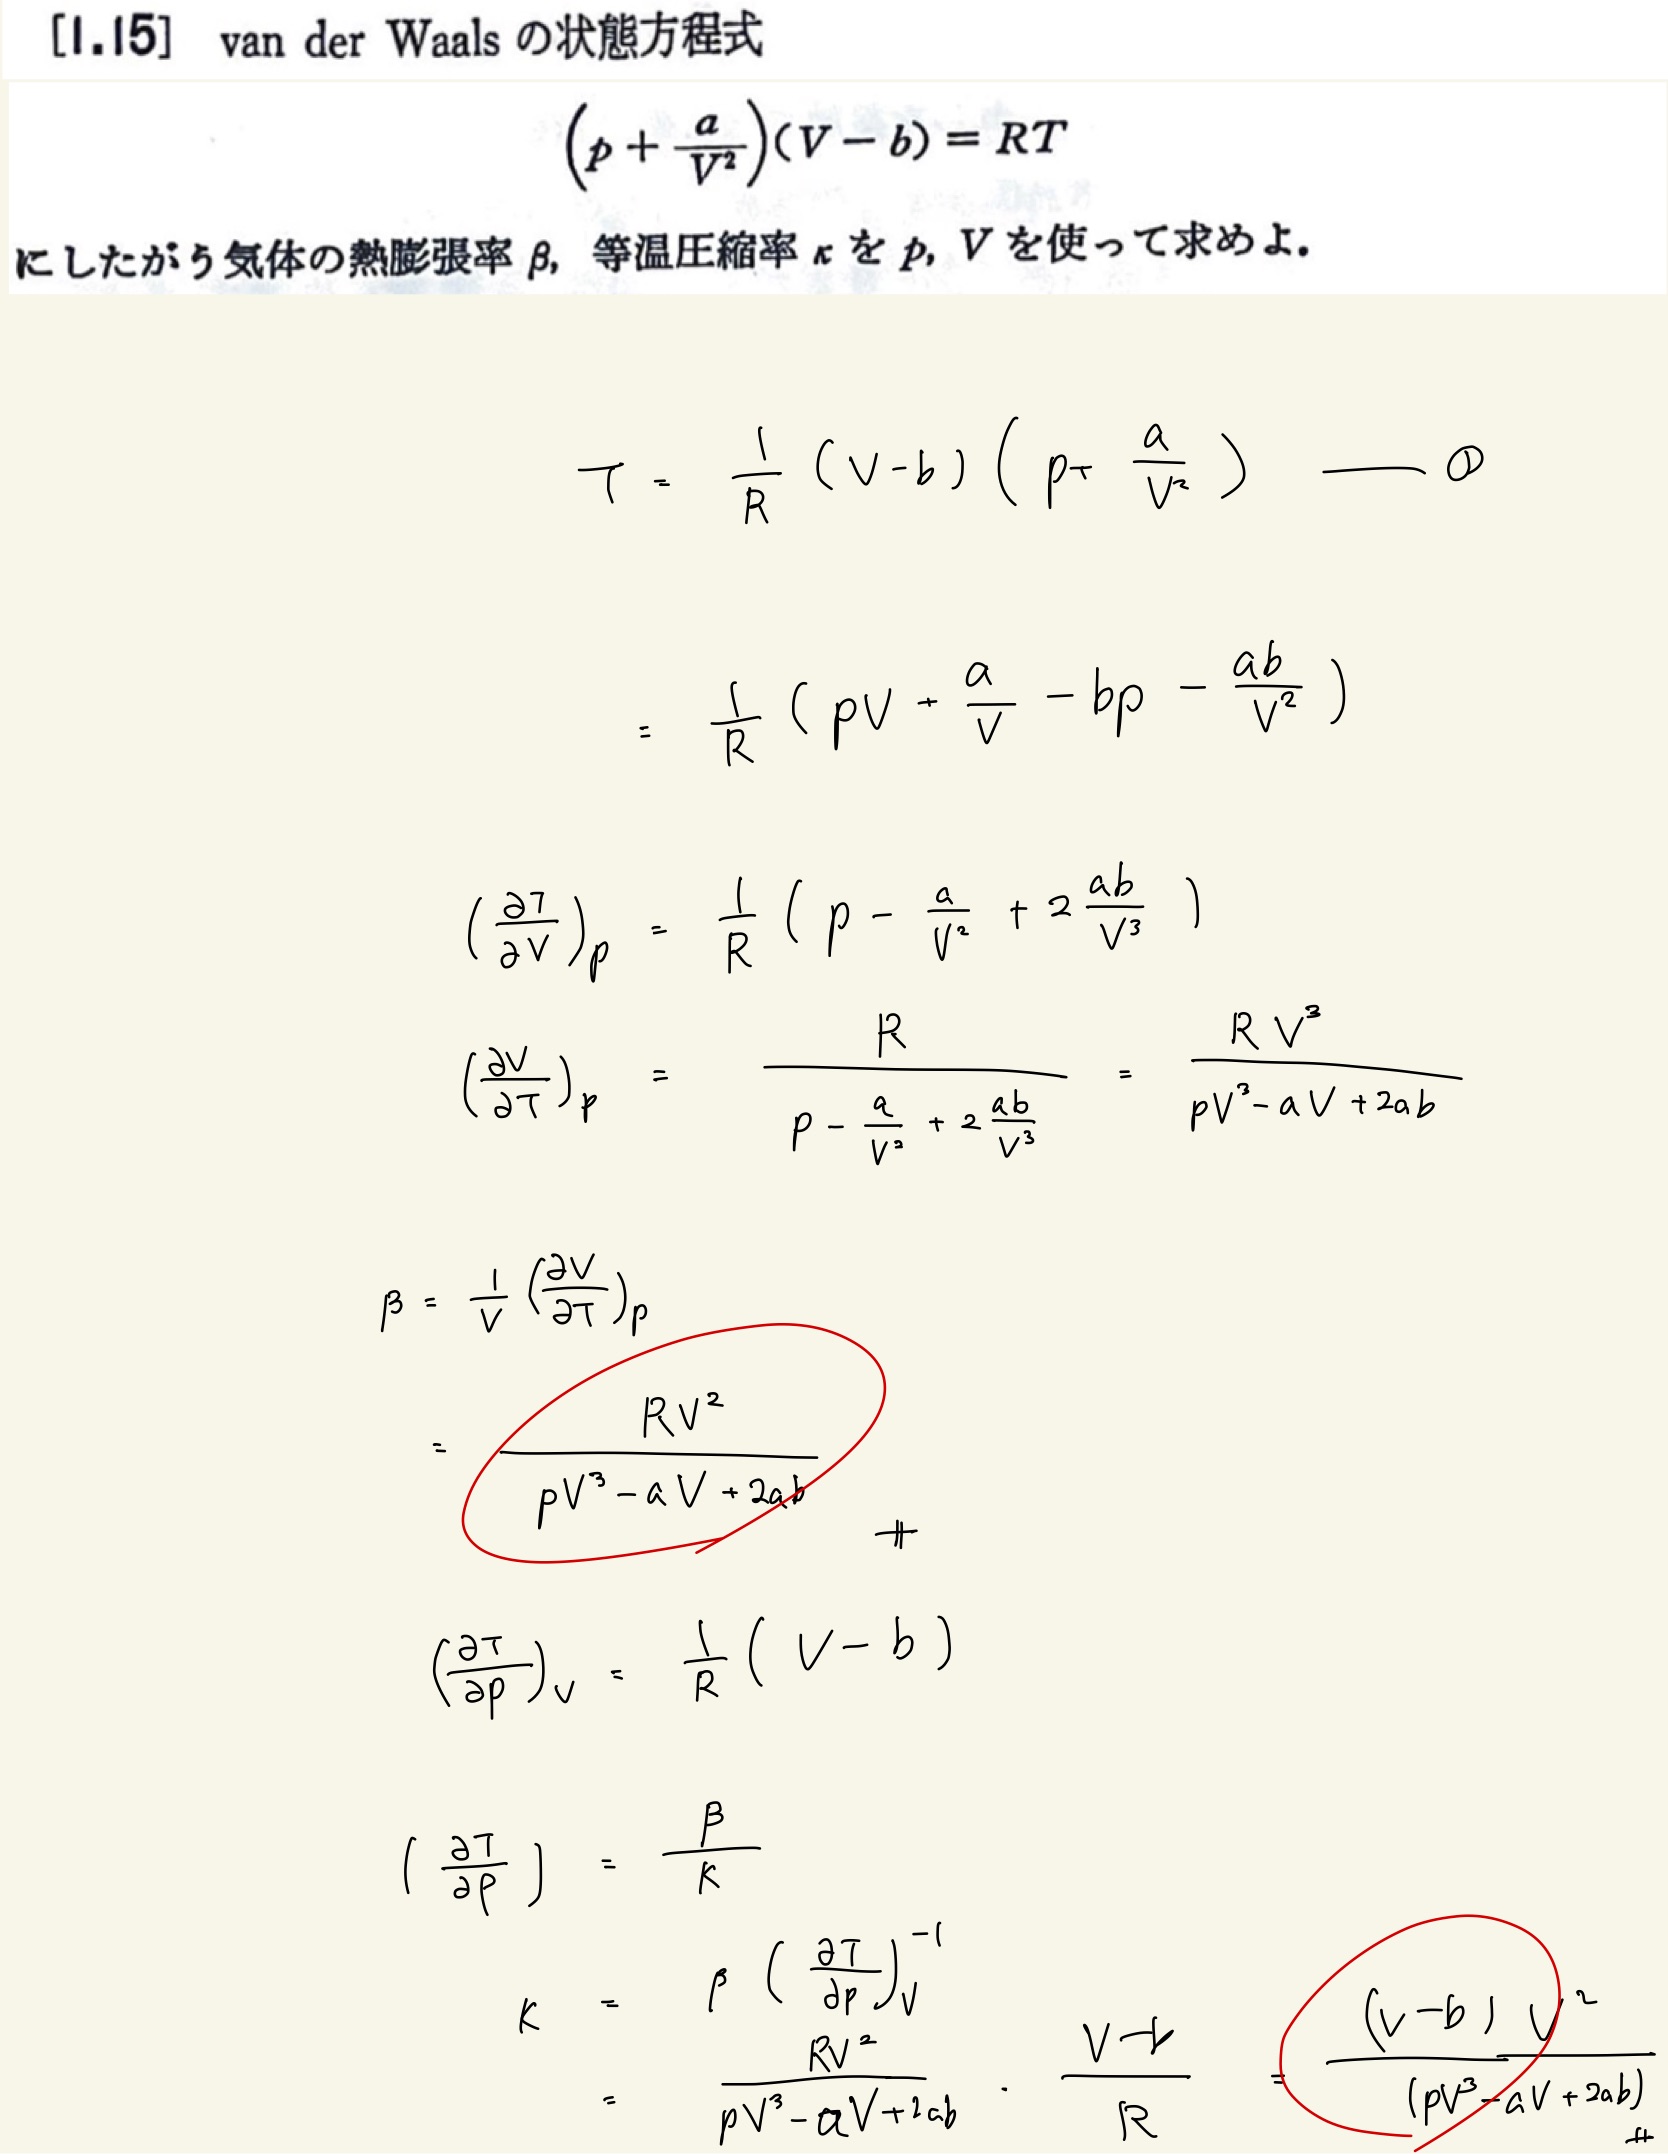 [1.15] van der Waals の状態方程式
(p + a/V²)(V − b) = RT
にしたがう気体の熱膨張率 β, 等温圧縮率 κ を p, V を使って求めよ.
T = 1/R (V-b) ( p+ a/V² ) — ①
= 1/R ( pV + a/V − bp − ab/V² )
(∂T/∂V)p = 1/R ( p − a/V² + 2 ab/V³ )
(∂V/∂T)p = R/(p − a/V² + 2 ab/V³) = RV³/(pV³ − aV + 2ab)
β = 1/V (∂V/∂T)p
= RV²/(pV³ − aV + 2ab) #
(∂T/∂p)V = 1/R ( V − b )
( ∂T/∂p ) = β/κ
κ = β ( ∂T/∂p )V⁻¹
= RV²/(pV³ − aV + 2ab) · (V−b)/R = (V−b) V²/(pV³ − aV + 2ab) #